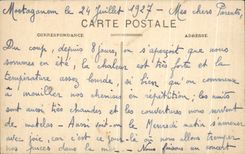 Mostaganem le 24 Juillet 1927 - Mes chers Parents
CARTE POSTALE
CORRESPONDANCE ADRESSE
Du coup, depuis 8 jours, on s'aperçoit que nous
sommes en été, la chaleur est très forte et la
température assez lourde, si bien qu'on commence
à mouiller nos chemises en répétition; les nuits
sont aussi très chaudes et les couvertures nous servent
de matelas - Aussi le Mercredi matin s'amène
avec joie, car c'est ce jour là nous allons tremper
nos puces dans la mer - Nous faisons un concert